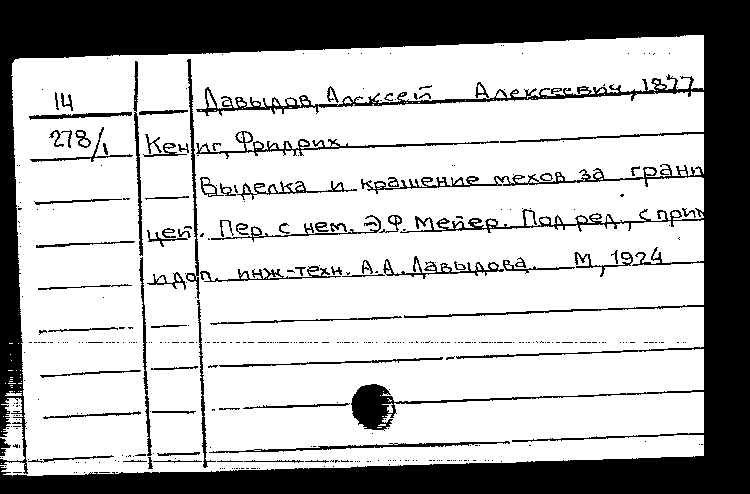 14 Давыдов, Алексей Алексеевич, 1877
278/1 Кениг, Фридрих.
Выделка и крашение мехов за грани
цей. Пер. с нем. Э.Ф. Мейер. Под ред., с прим
и доп. инж-техн. А.А. Давыдова. М, 1924